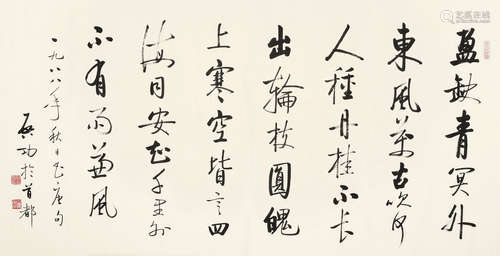 盈缺青冥外
東風萬古吹何
人種丹桂不長
出輪枝圓魄
上寒空皆言四
海同安知千里外
不有雨兼風
一九八八年秋日書唐句
啟功於首都